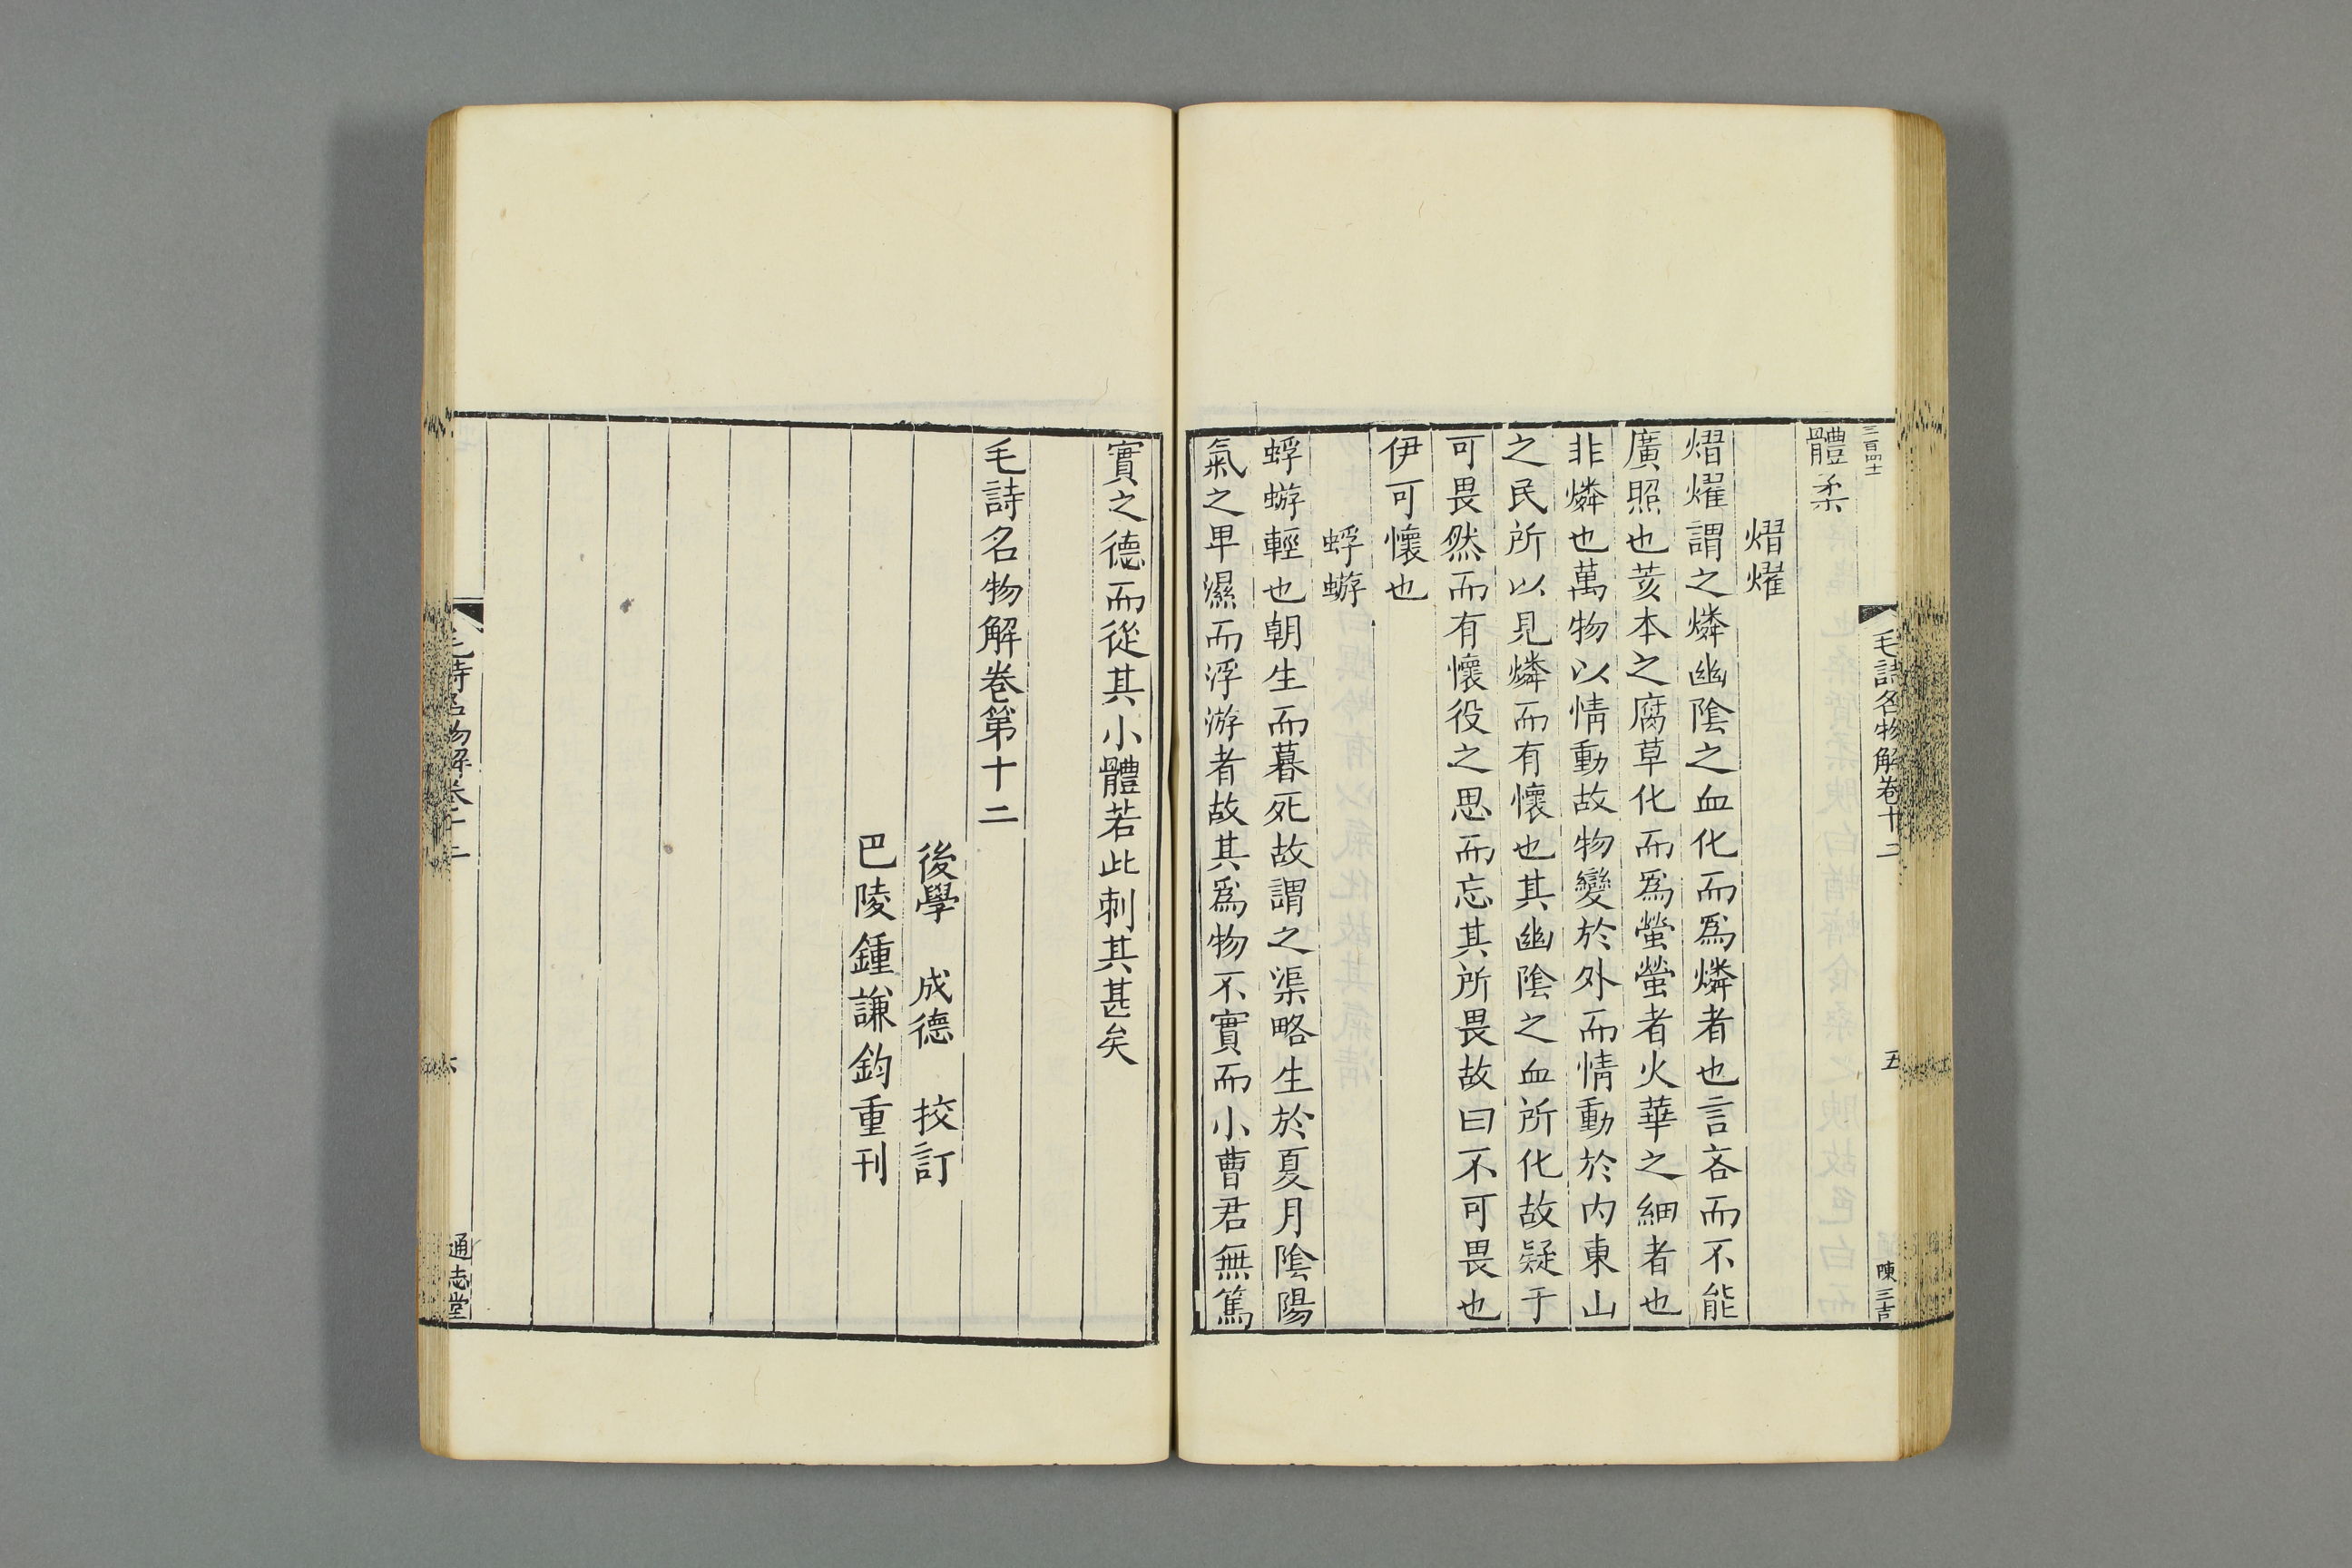 三百四十
毛詩名物解卷十二
五
陳三吉
體柔
熠燿
熠燿謂之燐幽陰之血化而爲燐者也言吝而不能
廣照也荄本之腐草化而爲螢螢者火華之細者也
非燐也萬物以情動故物變於外而情動於内東山
之民所以見燐而有懷也其幽陰之血所化故疑于
可畏然而有懷役之思而忘其所畏故曰不可畏也
伊可懷也
蜉蝣
蜉蝣輕也朝生而暮死故謂之渠略生於夏月陰陽
氣之卑濕而浮游者故其爲物不實而小曹君無篤
實之德而從其小體若此刺其甚矣
毛詩名物解卷第十二
後學 成德 挍訂
巴陵鍾謙鈞重刊
毛詩名物解卷十二
六
通志堂